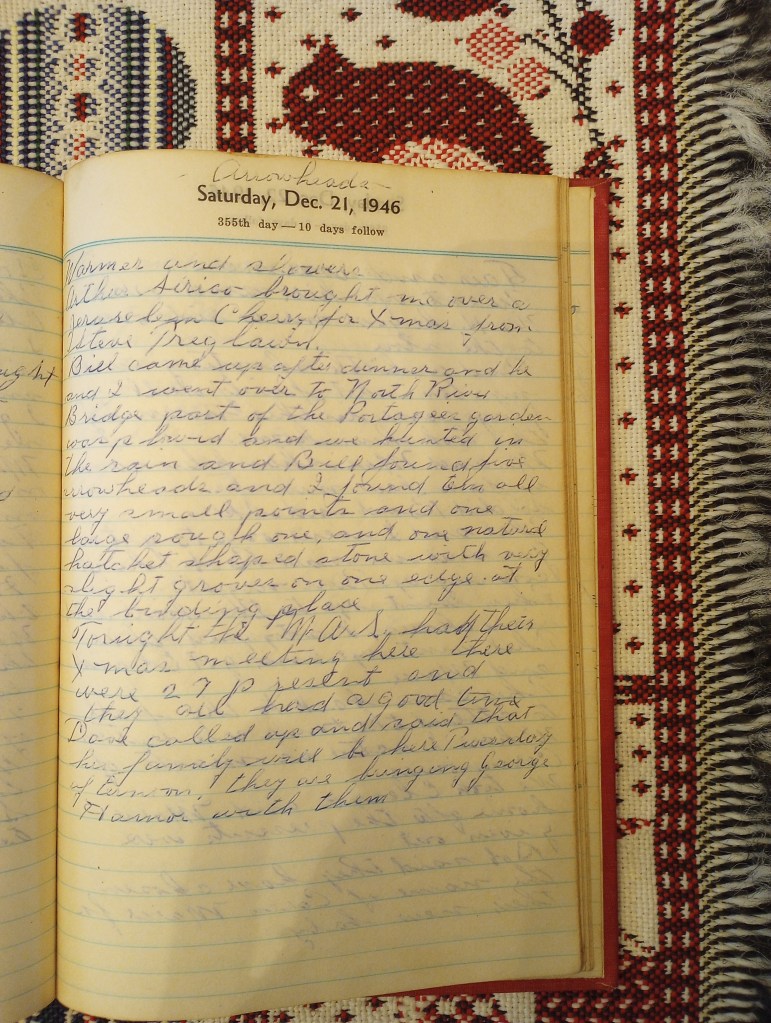 Arrowheads
Saturday, Dec. 21, 1946
355th day — 10 days follow
Warmer and showers
Arthur brought me over a
Cherry for X-mas from
Steve
Bill came up after dinner and he
and I went over to North River
Bridge part of the Portagees garden
was plowed and we hunted in
the rain and Bill found five
arrowheads and I found all
very small points and one
large rough one, and one natural
hatchet shaped stone with very
slight groves on one edge at
the place
Tonight the M.A.S. had their
X-mas meeting here there
were 27 present and
they all had a good time
Dave called up and said that
his family will be here
afternoon, they are bringing George
with them
ught